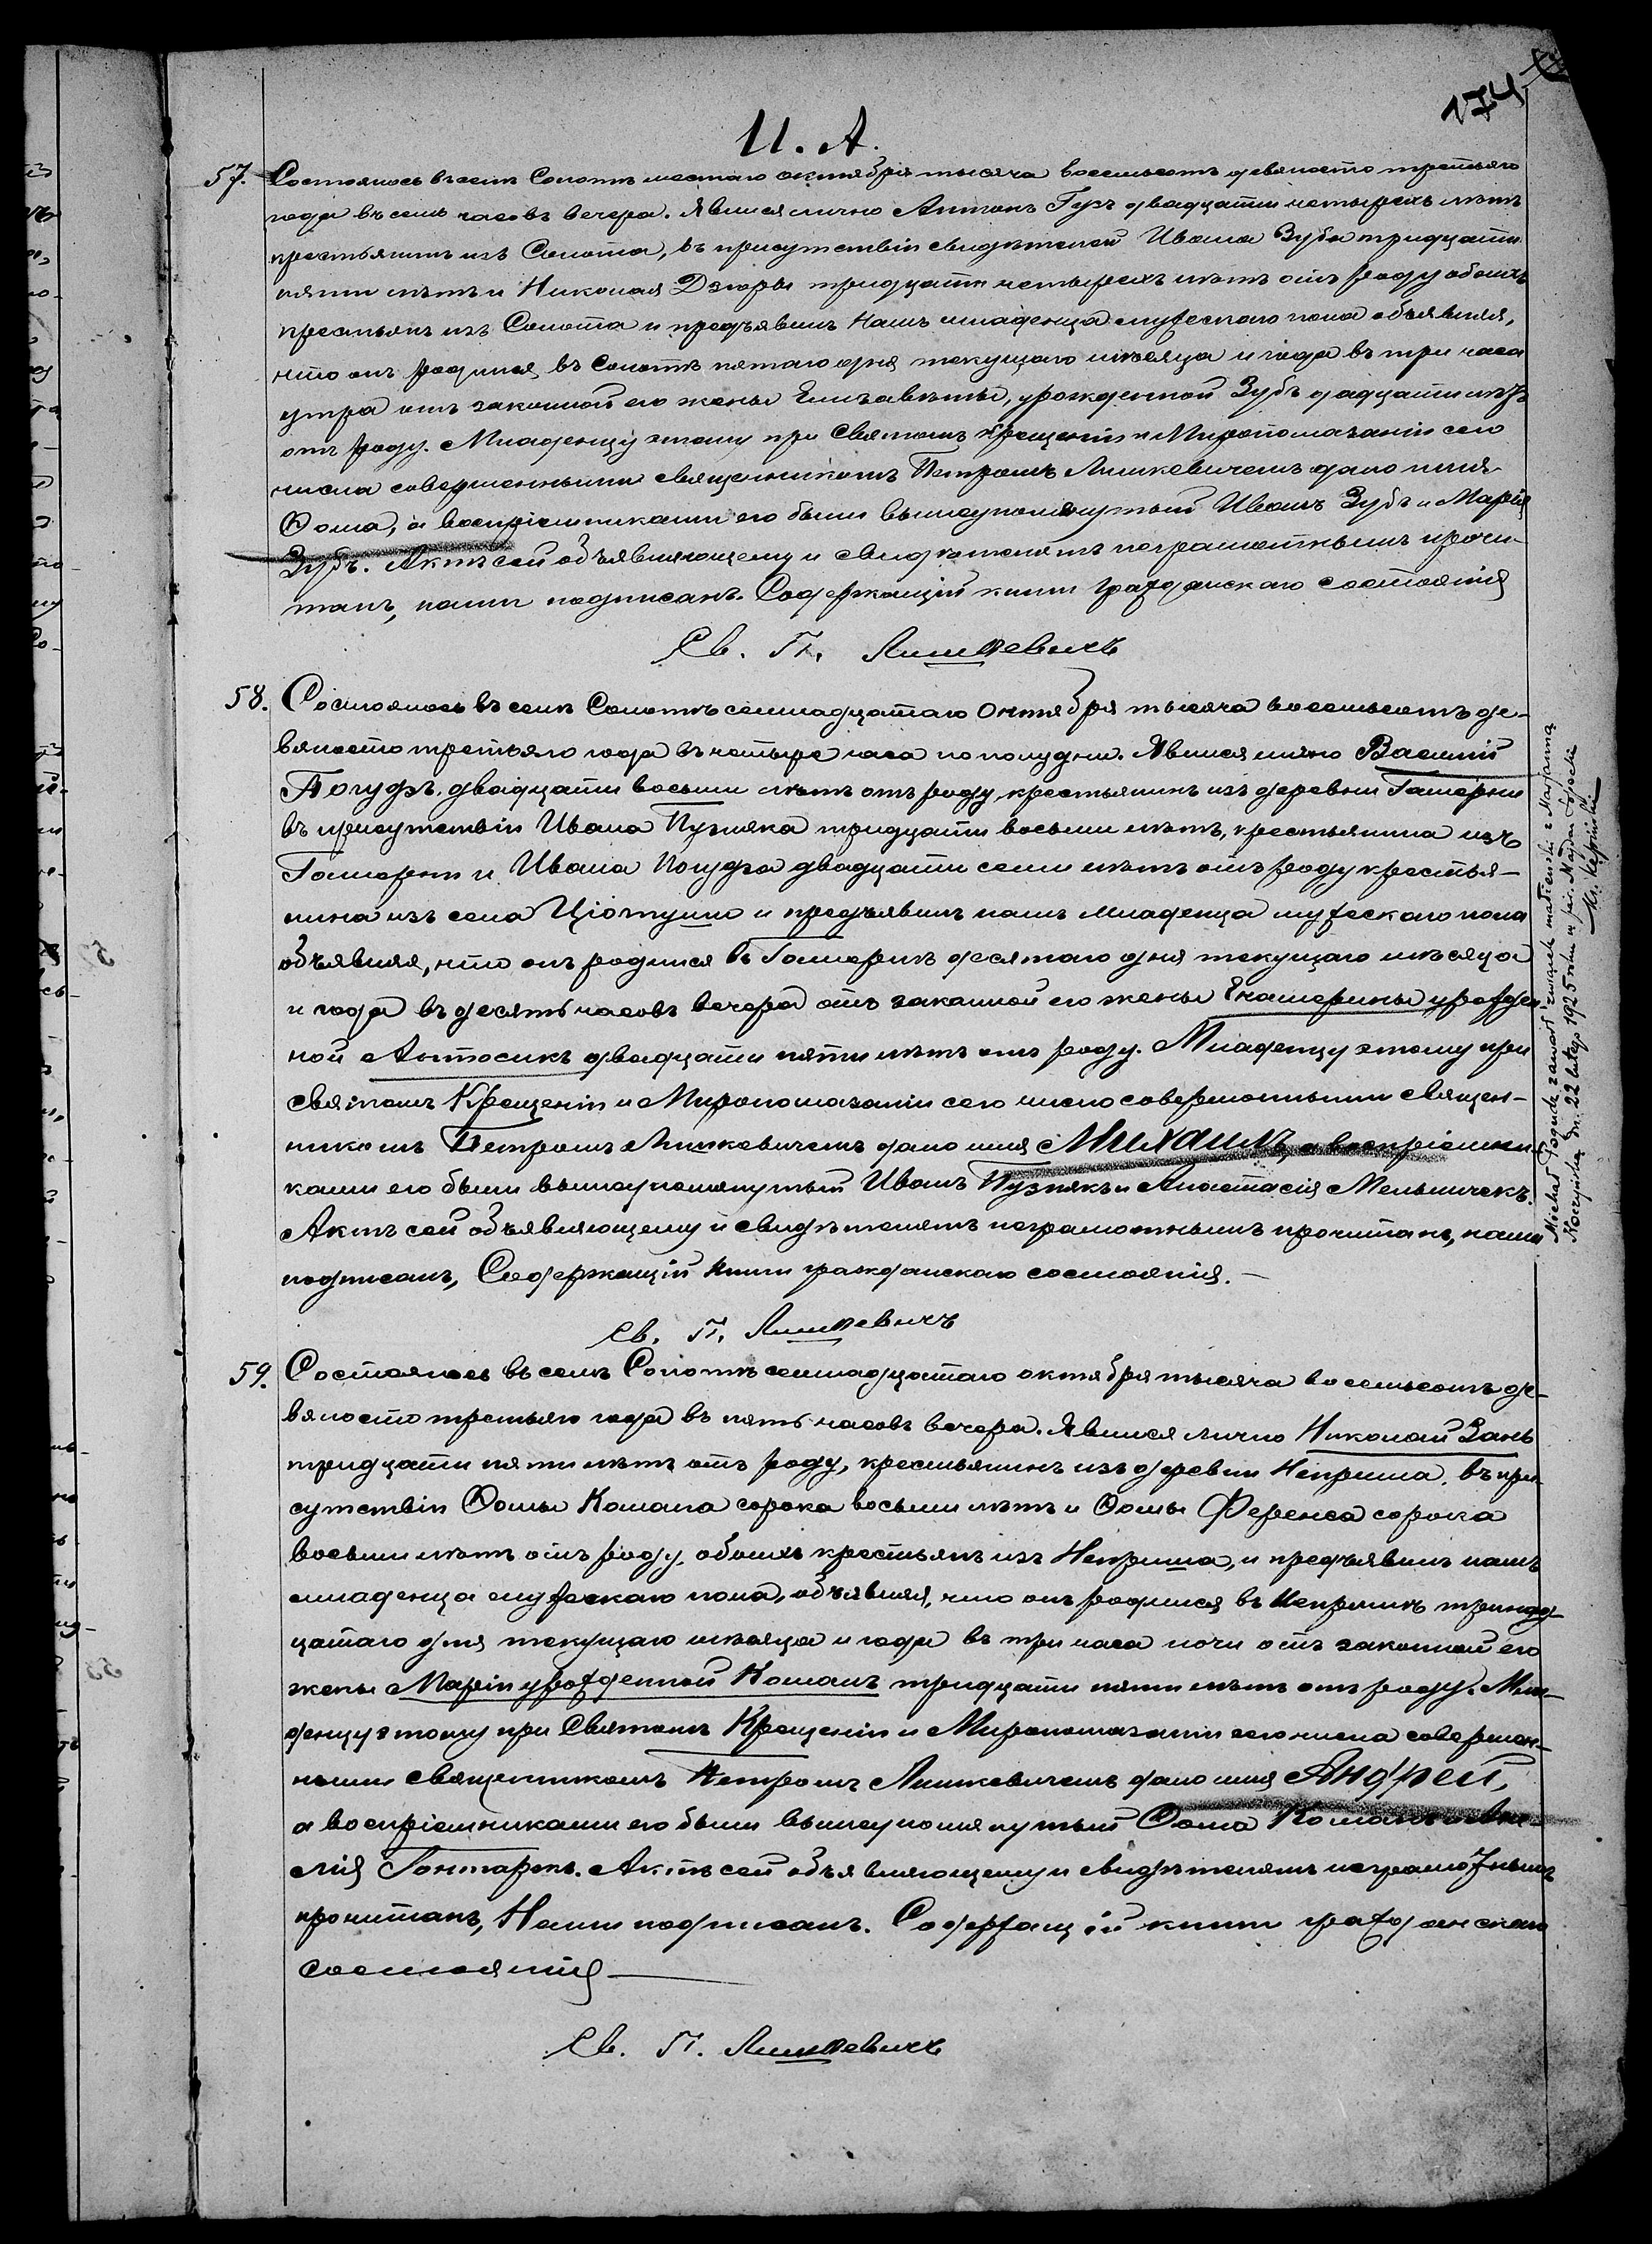 174
И. А.
57. Состоялось въ селѣ Сопотѣ шестаго октября тысяча восемьсотъ девяносто третьяго
года въ семь часовъ вечера. Явился лично Антонъ Гузъ двадцати четырехъ лѣтъ
крестьянинъ изъ Сопота, въ присутствіи свидѣтелей Ивана Зуба тридцати
пяти лѣтъ и Николая Дзюры тридцати четырехъ лѣтъ отъ роду обоихъ
крестьянъ изъ Сопота и предъявилъ Намъ младенца мужескаго пола объявляя,
что онъ родился въ Сопотѣ пятаго дня текущаго мѣсяца и года въ три часа
утра отъ законной его жены Елизаветы, урожденной Зубъ двадцати лѣтъ
отъ роду. Младенцу этому при Святомъ Крещеніи и Миропомазаніи сего
числа совершенными священникомъ Петромъ Линкевичемъ дано имя
Ѳома, а воспріемниками его были вышеупомянутый Иванъ Зубъ и Марія
Зубъ. Актъ сей объявляющему и свидѣтелямъ неграмотнымъ прочи-
танъ, нами подписанъ. Содержащій книги гражданскаго состоянія
Св. П. Линкевичъ
58. Состоялось въ селѣ Сопотѣ семнадцатаго Октября тысяча восемьсотъ де-
вяносто третьяго года въ четыре часа по полудни. Явился лично Василій
Погудзъ, двадцати восьми лѣтъ отъ роду, крестьянинъ изъ деревни Гамерни
въ присутствіи Ивана Пузняка тридцати восьми лѣтъ, крестьянина изъ
Гамерни и Ивана Погудза двадцати семи лѣтъ отъ роду крестья-
нина изъ села Ціотуши и предъявилъ намъ младенца мужескаго пола
объявляя, что онъ родился въ Гамернѣ десятаго дня текущаго мѣсяца
и года въ десять часовъ вечера отъ законной его жены Екатерины урожден
ной Антосикъ двадцати пяти лѣтъ отъ роду. Младенцу этому при
Святомъ Крещеніи и Миропомазаніи сего число совершонными Священ-
никомъ Петромъ Линкевичемъ дано имя Михаилъ, а воспріемни
ками его были вышеупомянутый Иванъ Пузнякъ и Анастасія Мельничекъ.
Актъ сей объявляющему и свидѣтелямъ неграмотнымъ прочитанъ, нами
подписанъ, Содержащій книги гражданскаго состоянія.—
Св. П. Линкевичъ
59. Состоялось въ селѣ Сопотѣ семнадцатаго октября тысяча восемьсотъ де-
вяносто третьяго года въ пять часовъ вечера. Явился лично Николай Зань
тридцати пяти лѣтъ отъ роду, крестьянинъ изъ деревни Неприша, въ при-
сутствіи Ѳомы Комана сорока восьми лѣтъ и Ѳомы Ференса сорока
восьми лѣтъ отъ роду, обоихъ крестьянъ изъ Неприша, и предъявилъ намъ
младенца мужескаго пола, объявляя, что онъ родился въ Непришѣ тринад-
цатаго дня текущаго мѣсяца и года въ три часа ночи отъ законной его
жены Маріи урожденной Команъ тридцати пяти лѣтъ отъ роду. Мла-
денцу этому при Святомъ Крещеніи и Миропомазаніи сего числа совершон-
ными Священникомъ Петромъ Линкевичемъ дано имя Андрей,
а воспріемниками его были вышеупомянутый Ѳома Команъ и
Гонтарзъ. Актъ сей объявляющему и свидѣтелямъ неграмотнымъ
прочитанъ, Нами подписанъ. Содержащій книги гражданскаго
состоянія—
Св. П. Линкевичъ
Michał Pogudz zawarł związek małżeński z Marjanną
dn. 22 lutego 1925 roku w par.
Ks.